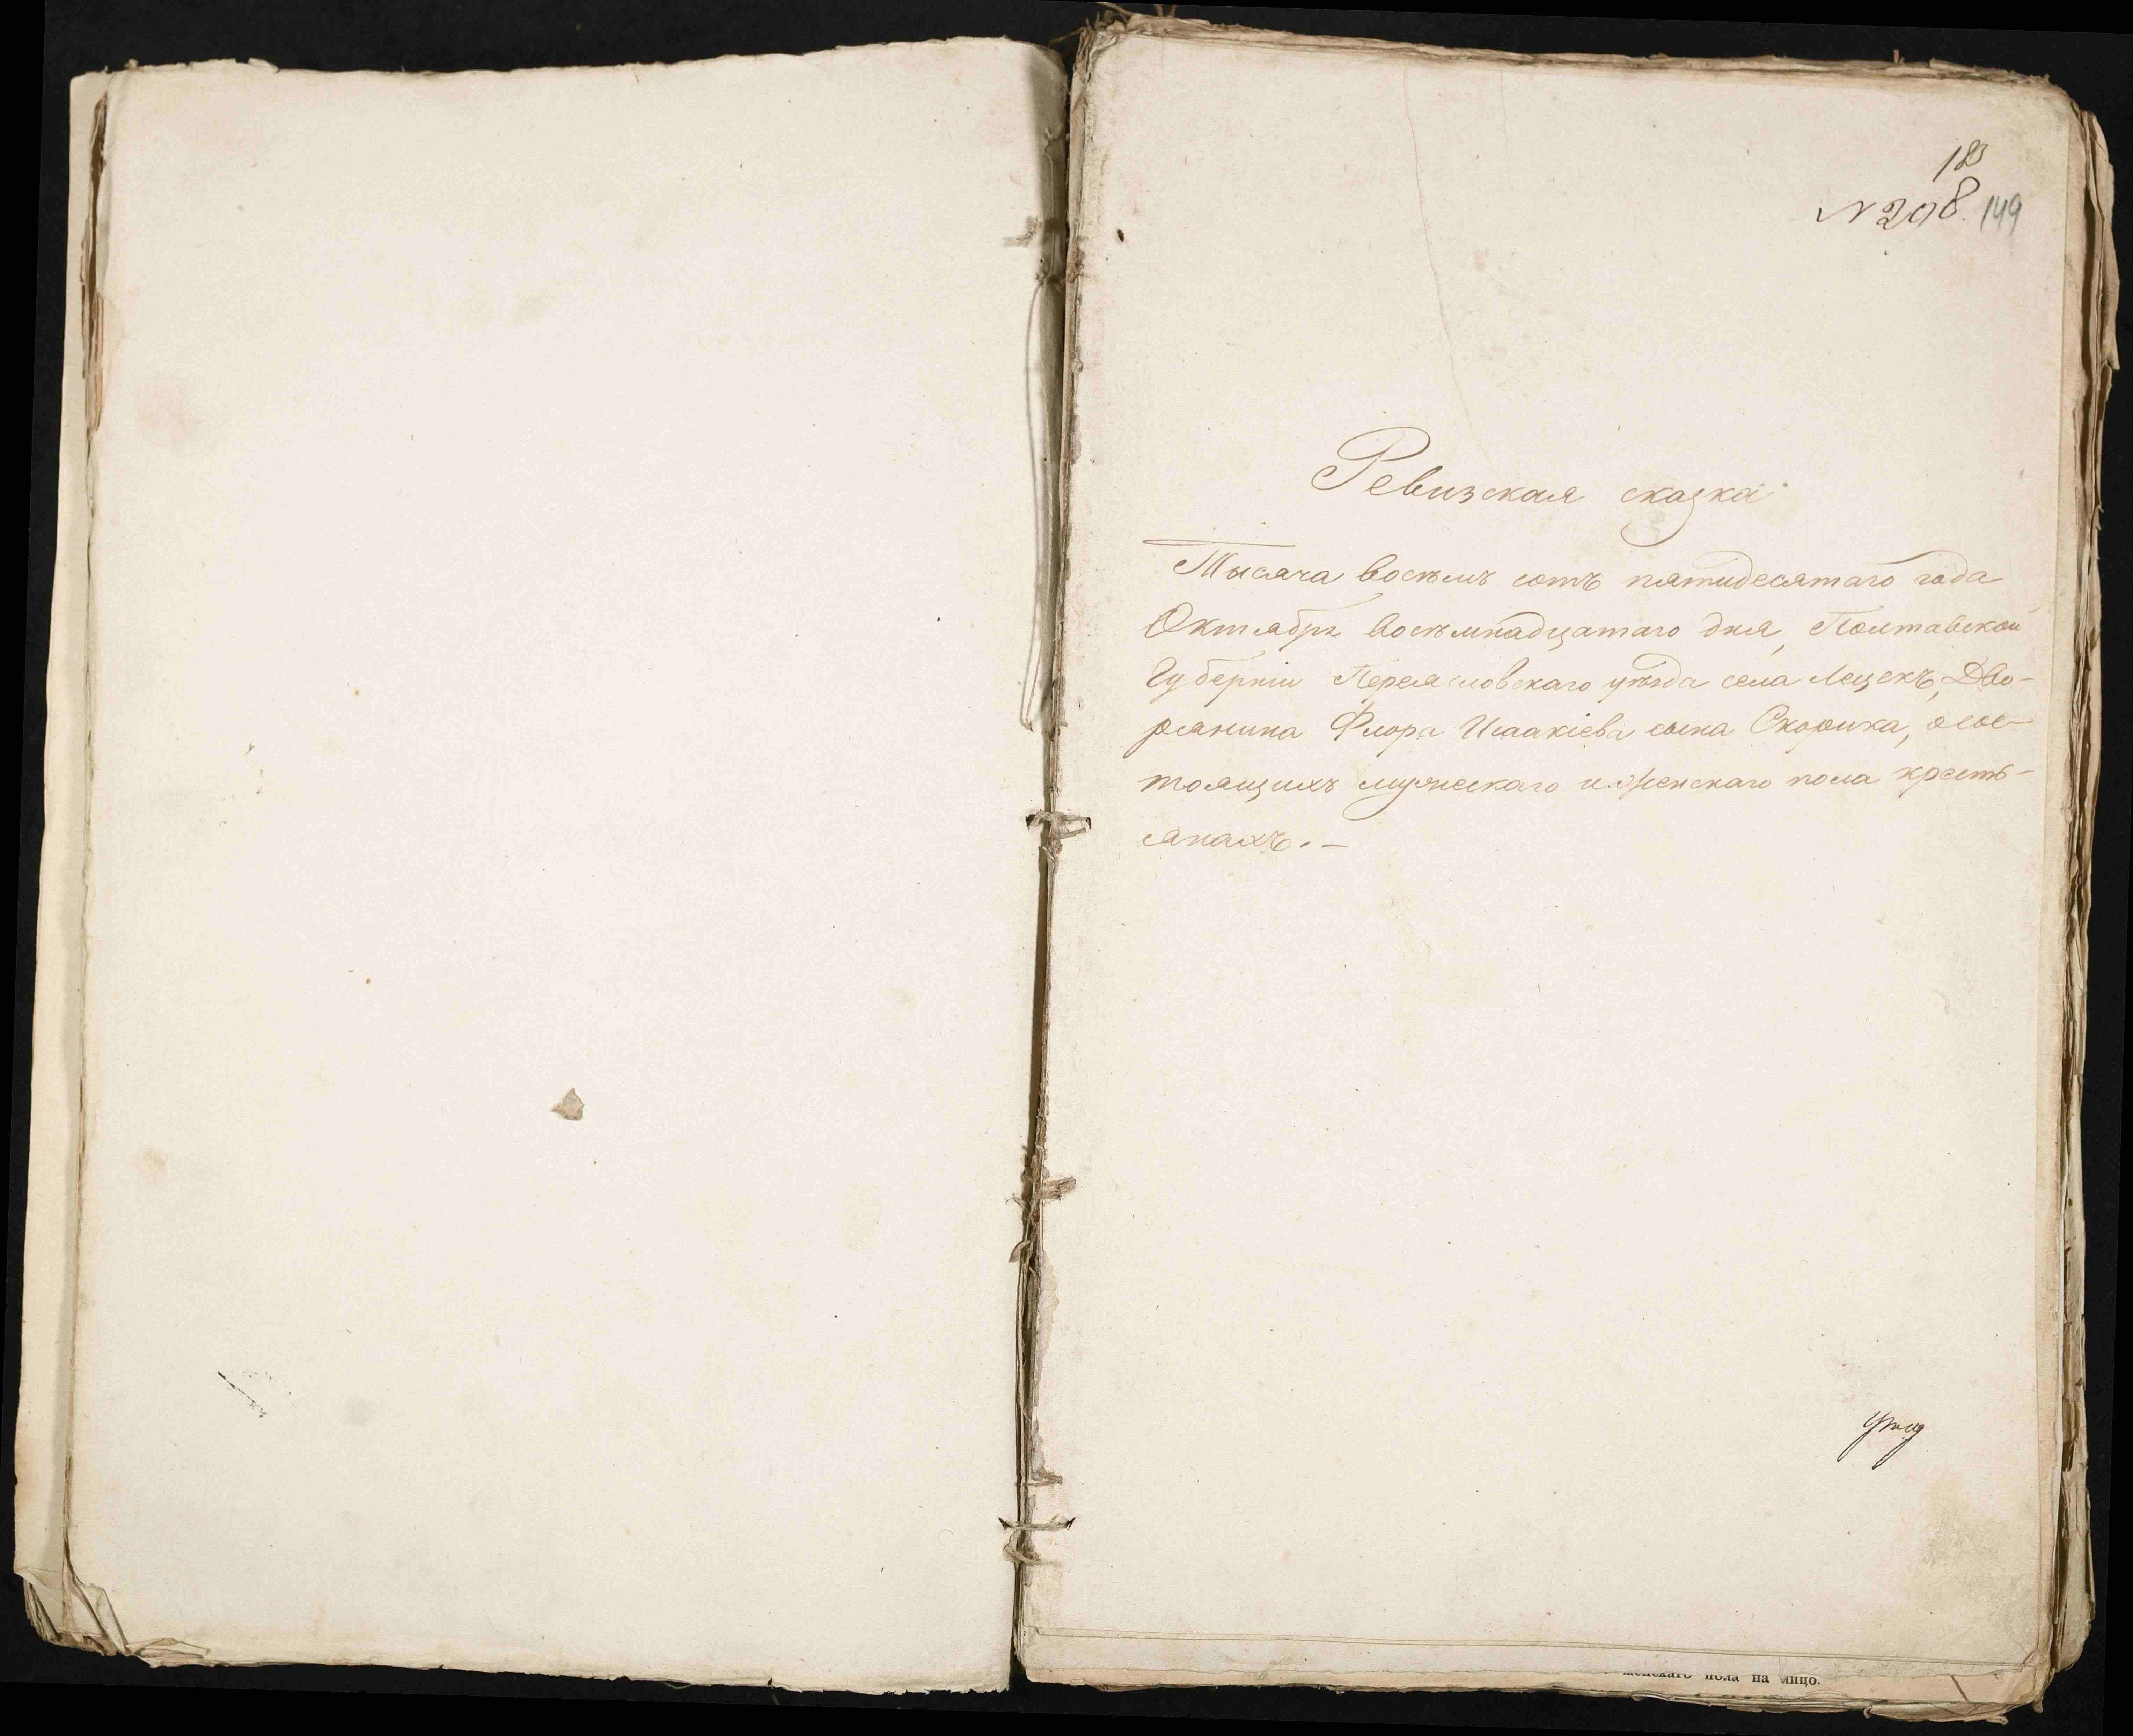 183
N 208. 149
Ревизская сказка
Тысяча восемь сотъ пятидесятаго года
Октября восемнадцатаго дня, Полтавской
Губерніи Переясловскаго уѣзда села Лецекъ, Дво-
рянина Флора Исаакіева сына Скорика, осос-
тоящихъ мужескаго и женскаго пола кресть-
янахъ. —
женскаго пола на лицо.